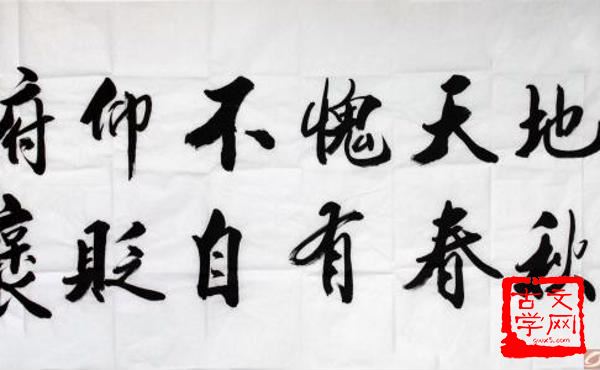 俯仰不愧天地
褒貶自有春秋
古文
学网
gwx5.com